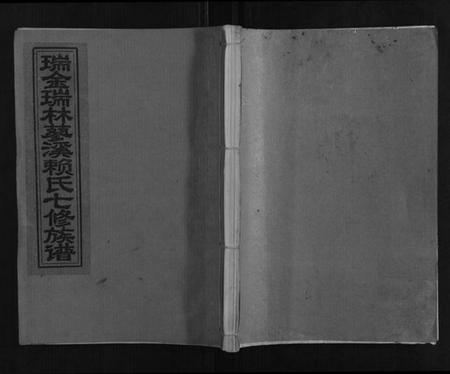 瑞金瑞林蓼溪赖氏七修族谱